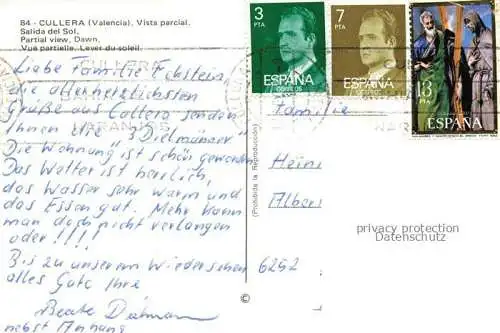 84 - CULLERA (Valencia), Vista parcial.
Salida del Sol,
Partial view, Dawn,
Vue partielle. Lever du soleil.
3
PTA
ESPAÑA
CORREOS
7
PTA
ESPAÑA
CORREOS
13
PTA
ESPAÑA
CULLERA
Liebe Familie Eckstein,
die allerherzlichsten
Grüße aus Cullera senden
Ihnen Ihre 3 "Dielmänner"
"Die Wohnung" ist schön geworden
Das Wetter ist herrlich,
das Wasser sehr warm und
das Essen gut. Mehr kann
man doch nicht verlangen
oder!!!!
Bis zu unserem Wiedersehen
alles Gute Ihre
Beate
nebst Anhang
(Prohibida la Reproducción)
©
Familie
Heinz
Albers
6242
privacy protection
Datenschutz